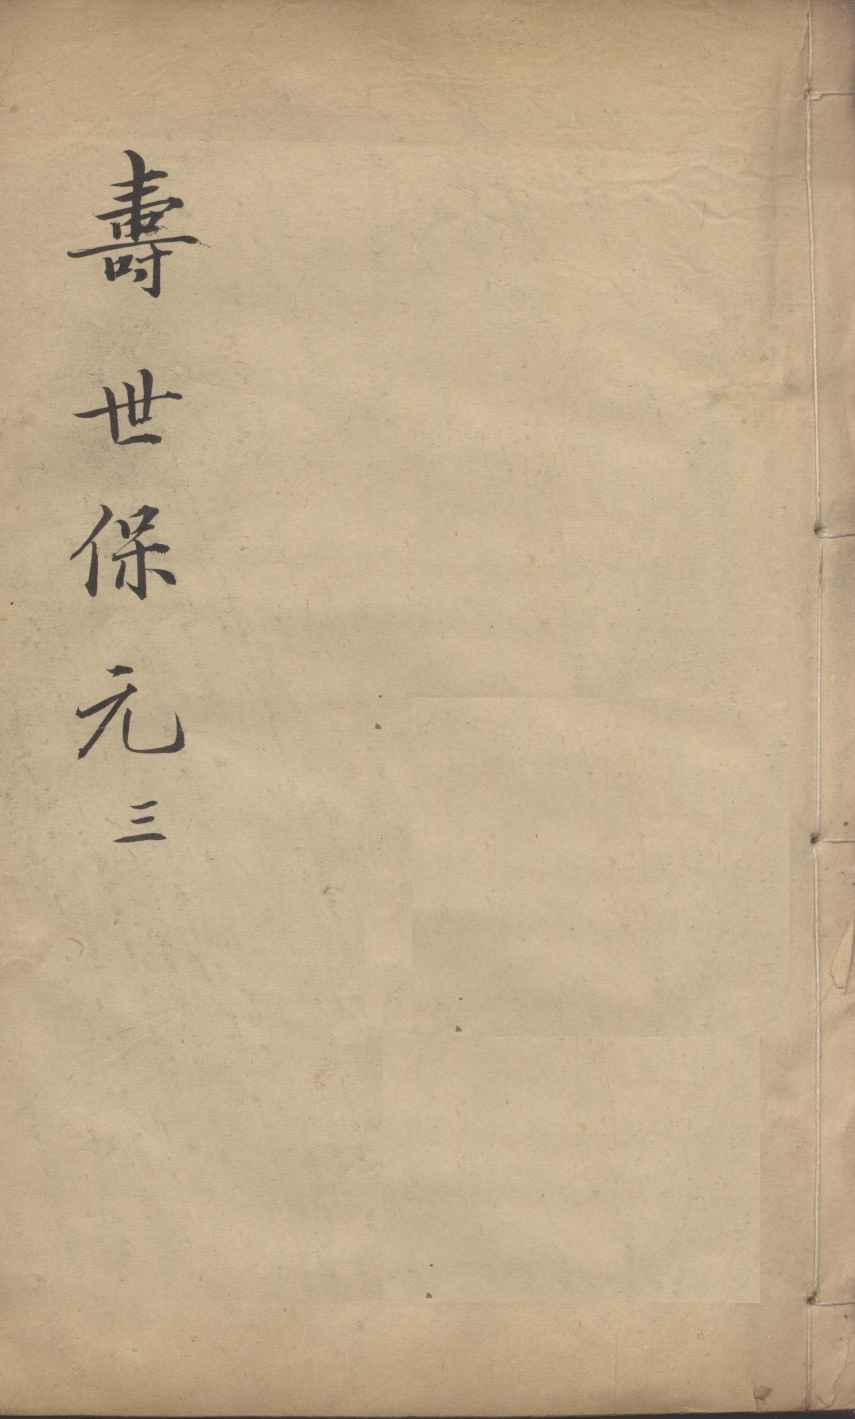 壽世保元三